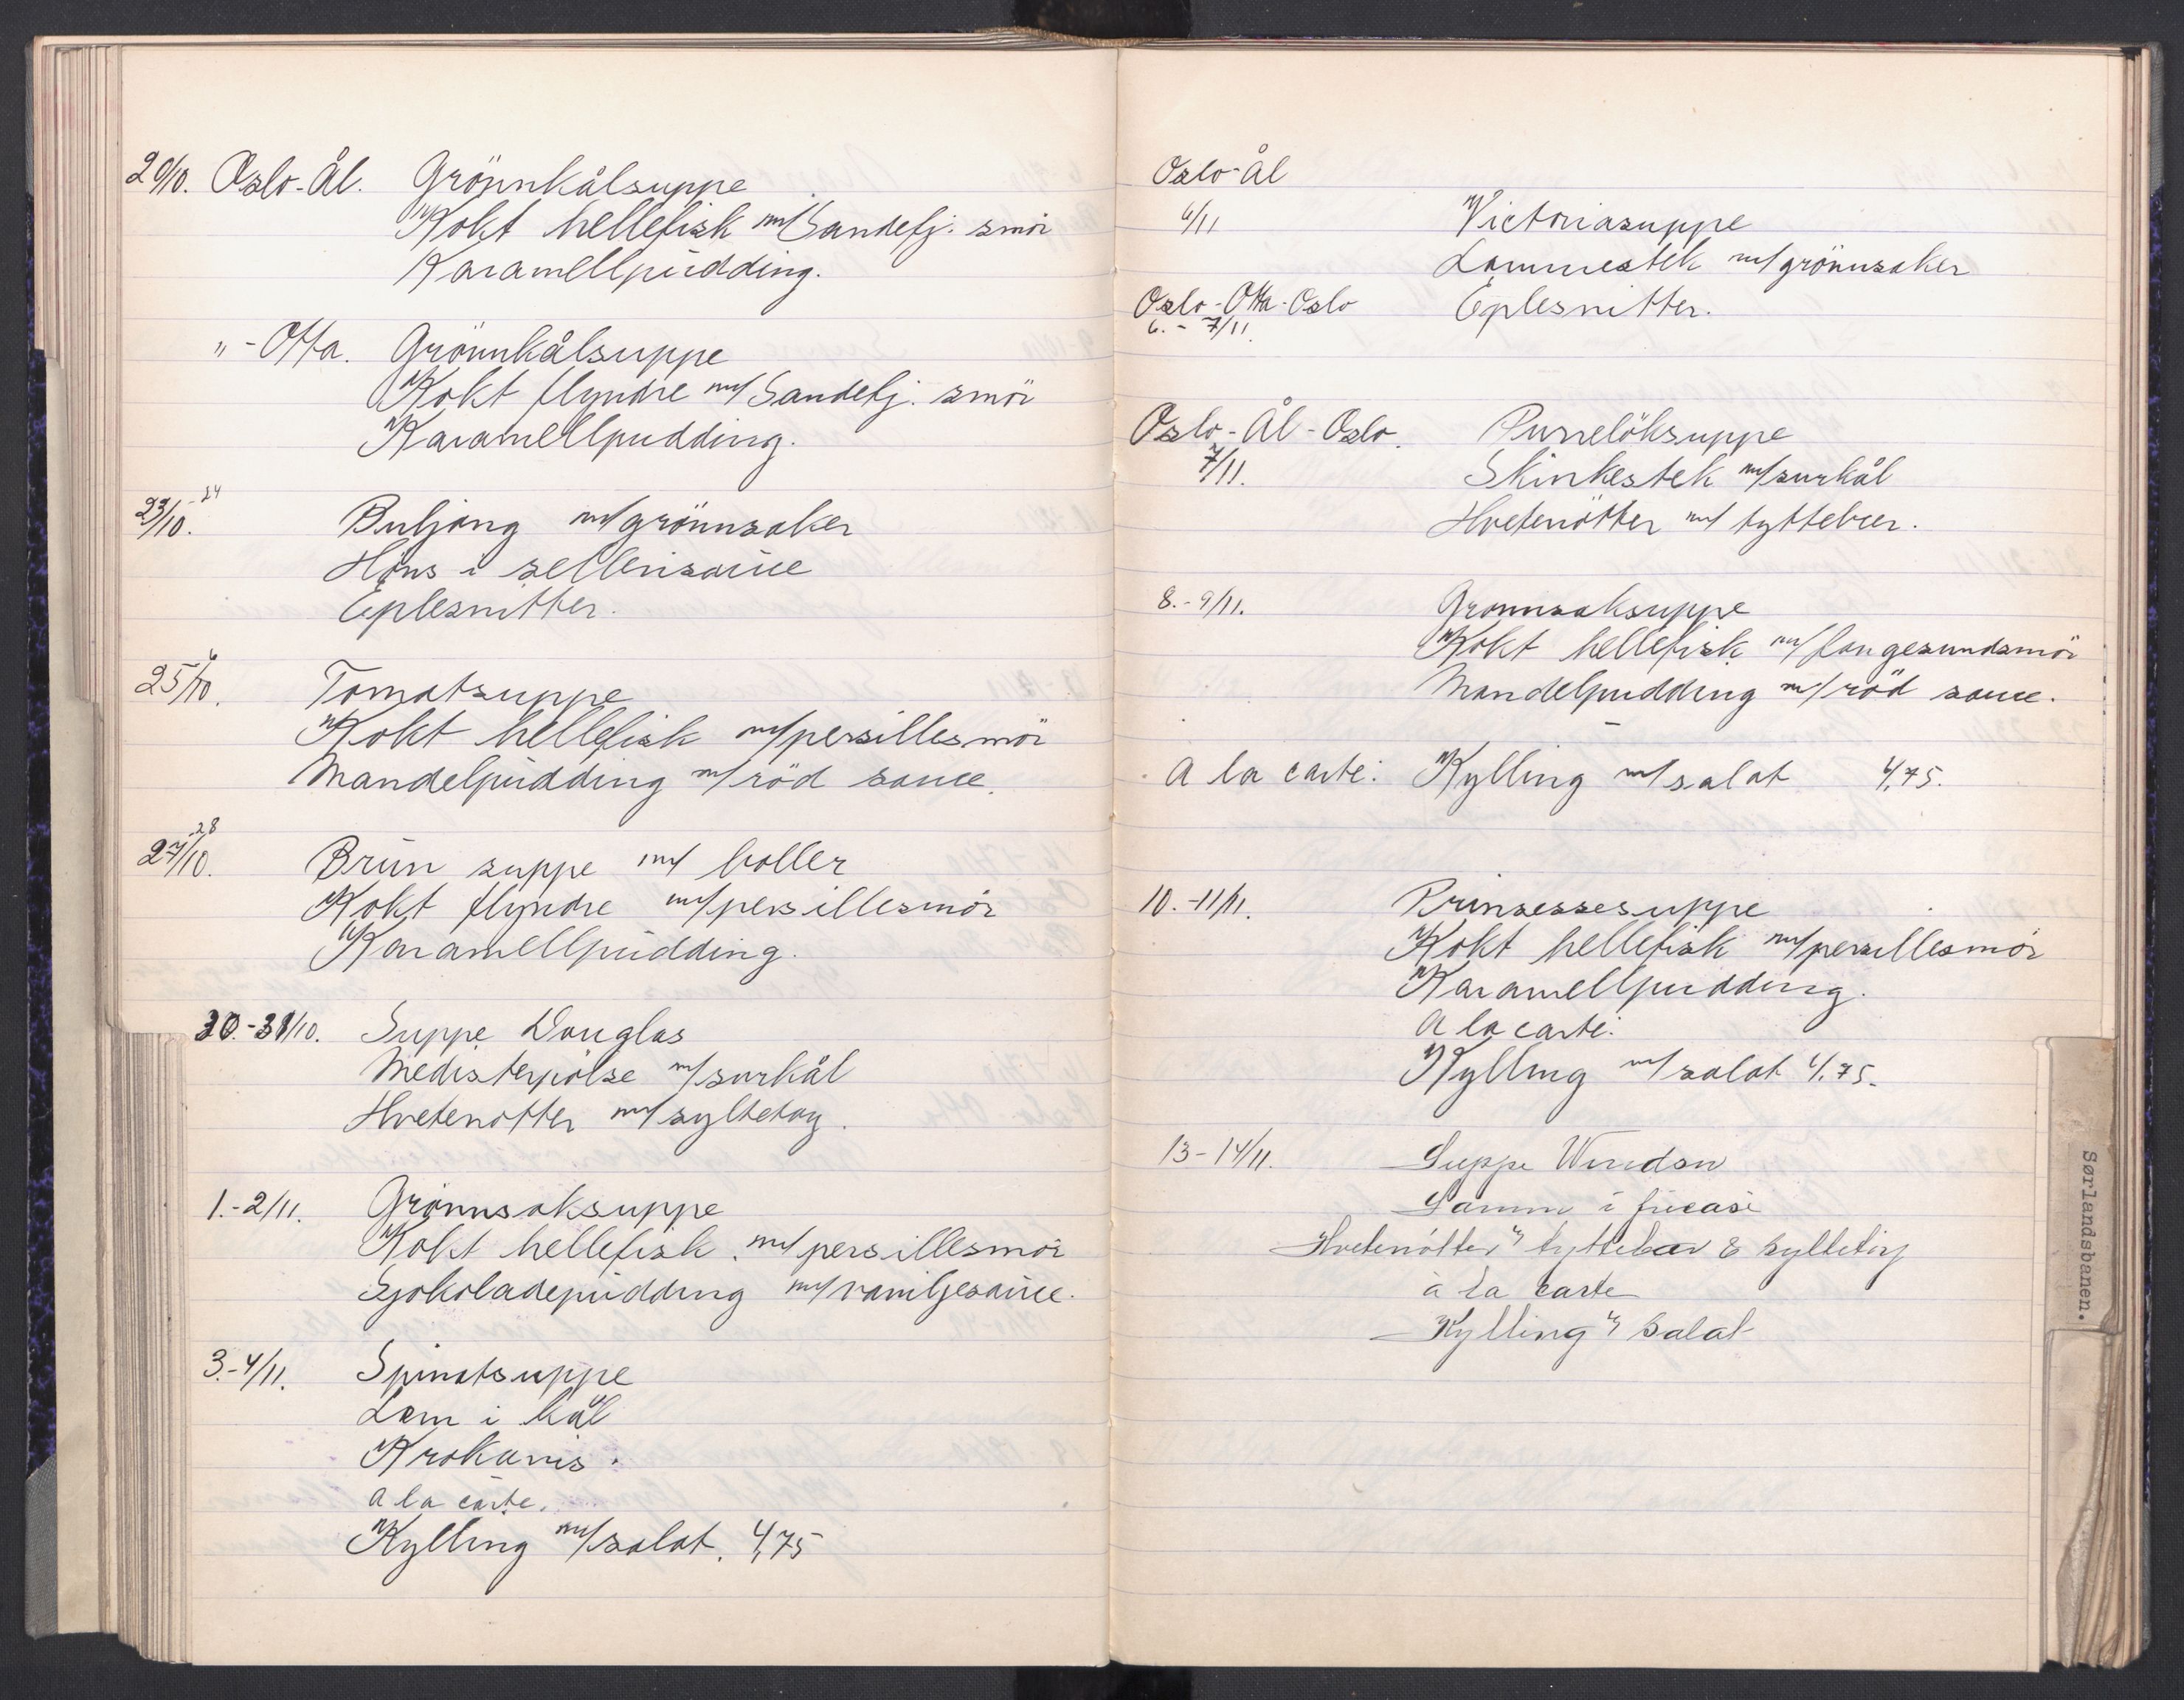 20/10. Oslo-Ål. Grönnkålsuppe
Kokt hellefisk m/Sandefj. smör
Karamellpudding.
" - Otta. Grönnkålsuppe
Kokt flyndre m/Sandefj. smör
Karamellpudding.
23/10.-24 Buljong m/grönnsaker
Höns i sellerisauce
Eplesnitter.
25/10. Tomatsuppe
Kokt hellefisk m/persillesmör
Mandelpudding m/röd sauce.
27/10.-28 Brun suppe m/ boller
Kokt flyndre m/persillesmör
Karamellpudding.
30.-31/10. Suppe Douglas
Medisterpölse m/surkål
Hvetenötter m/syltetøy.
1.-2/11. Grönnsaksuppe
Kokt hellefisk m/persillesmör
Sjokoladepudding m/vaniljesauce.
3.-4/11. Spinatsuppe
Lam i kål
Krokanis.
A la carte.
Kylling m/salat. 4,75
Oslo-Ål
6/11 Victoriasuppe
Lammestek m/grönnsaker
Oslo-Otta-Oslo Eplesnitter.
6.-7/11.
Oslo-Ål-Oslo. Purrelöksuppe
7/11. Skinkestek m/surkål
Hvetenötter m/ tyttebær.
8.-9/11. Grönnsaksuppe
Kokt hellefisk m/ fangesundsmör
Mandelpudding m/röd sauce.
A la carte: Kylling m/salat 4,75.
10.-11/11. Prinsessesuppe
Kokt hellefisk m/persillesmör
Karamellpudding.
A la carte:
Kylling m/salat 4,75.
13-14/11. Suppe Windsor
Lamm i fricasé
Hvetenötter m tyttebær & syltetøy
à la carte
Kylling m salat
Sørlandsbanen.